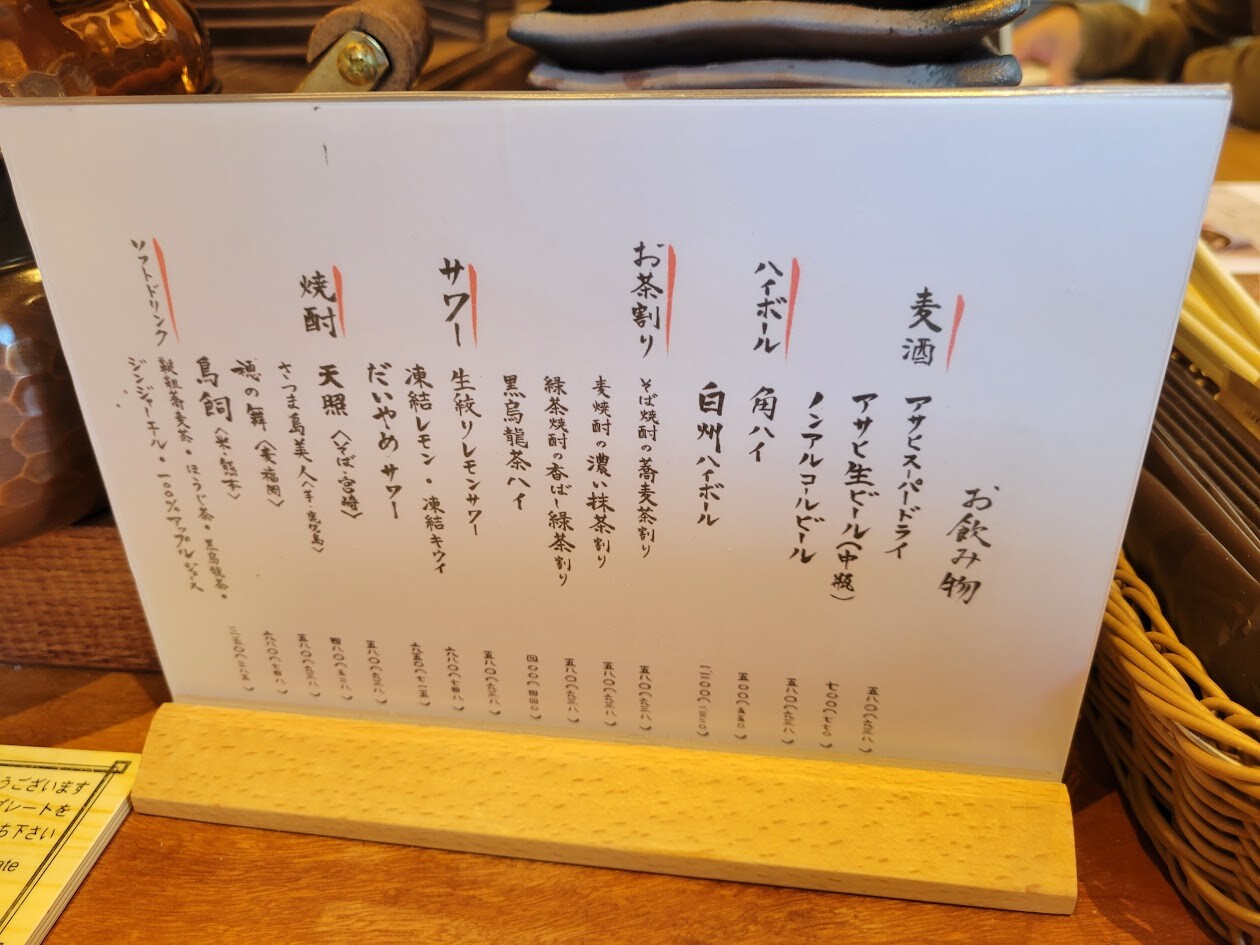 お飲み物
麦酒
アサヒスーパードライ 五八〇(六三八)
アサヒ生ビール(中瓶) 七〇〇(七七〇)
ノンアルコールビール 五八〇(六三八)
ハイボール
角ハイ 五〇〇(五五〇)
白州ハイボール
お茶割り
そば焼酎の蕎麦茶割り 五八〇(六三八)
麦焼酎の濃い抹茶割り 五八〇(六三八)
緑茶焼酎の香ばし緑茶割り 五八〇(六三八)
黒烏龍茶ハイ 四〇〇(四四〇)
サワー
生絞りレモンサワー 五八〇(六三八)
凍結レモン・凍結キウイ 六八〇(七四八)
だいやめサワー 六五〇(七一五)
焼酎
天照〈そば・宮崎〉 五八〇(六三八)
さつま島美人〈芋・鹿児島〉 四八〇(五二八)
穂の舞〈麦・福岡〉 五八〇(六三八)
鳥飼〈米・熊本〉 六八〇(七四八)
ソフトドリンク
韃靼蕎麦茶・ほうじ茶・黒烏龍茶・ 三五〇(三八五)
ジンジャーエール・一〇〇%アップルジュース
うございます
プレートを
ち下さい
ate